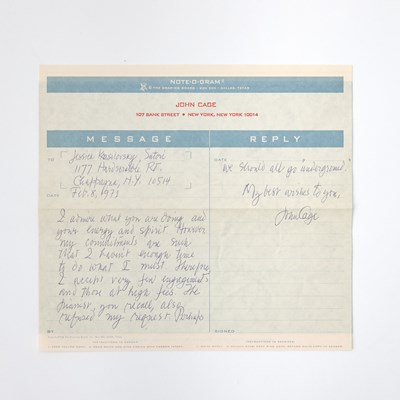 NOTE-O-GRAM
JOHN CAGE
107 BANK STREET • NEW YORK, NEW YORK 10014
MESSAGE
REPLY
TO
1177 Hardscrabble Rd.
Chappaqua, N.Y. 10514
DATE
Feb. 8, 1973
I admire what you are doing and
your energy and spirit. However
my commitments are such
that I haven't enough time
to do what I must. Therefore
I accept very few engagements
and those at high fees. The
you recall, also
refused my request. Perhaps
BY
DATE
we should all go "underground."
My best wishes to you,
John Cage
SIGNED